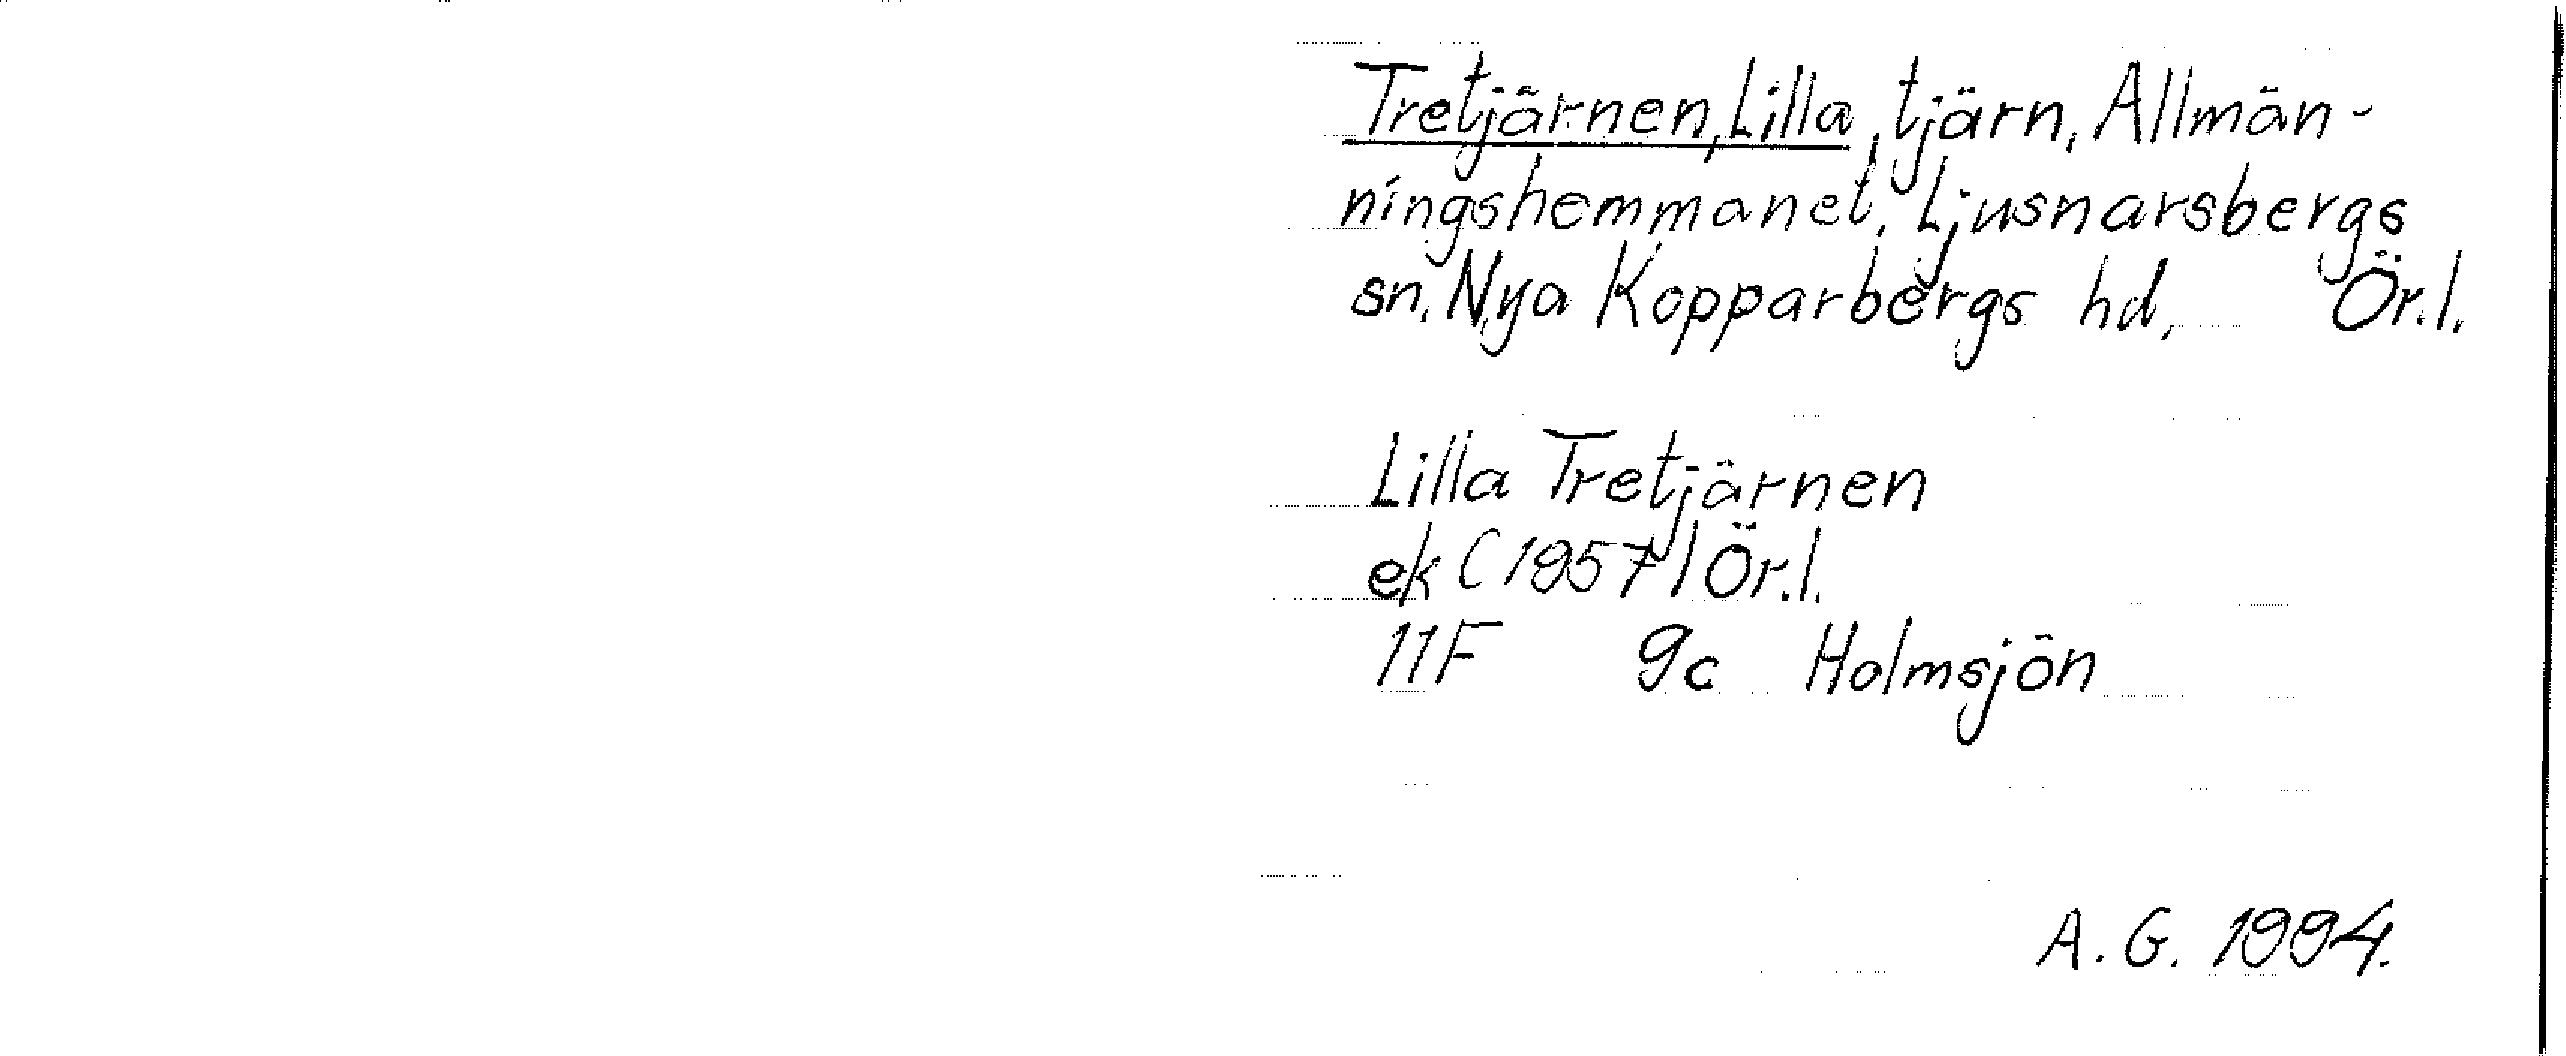 Tretjärnen, Lilla, tjärn, Allmän-
ningshemmanet, Ljusnarsbergs
sn, Nya Kopparbergs hd, Ör.l.
Lilla Tretjärnen
ek (1957) Ör.l.
11F 9c Holmsjön
A. G. 1994.